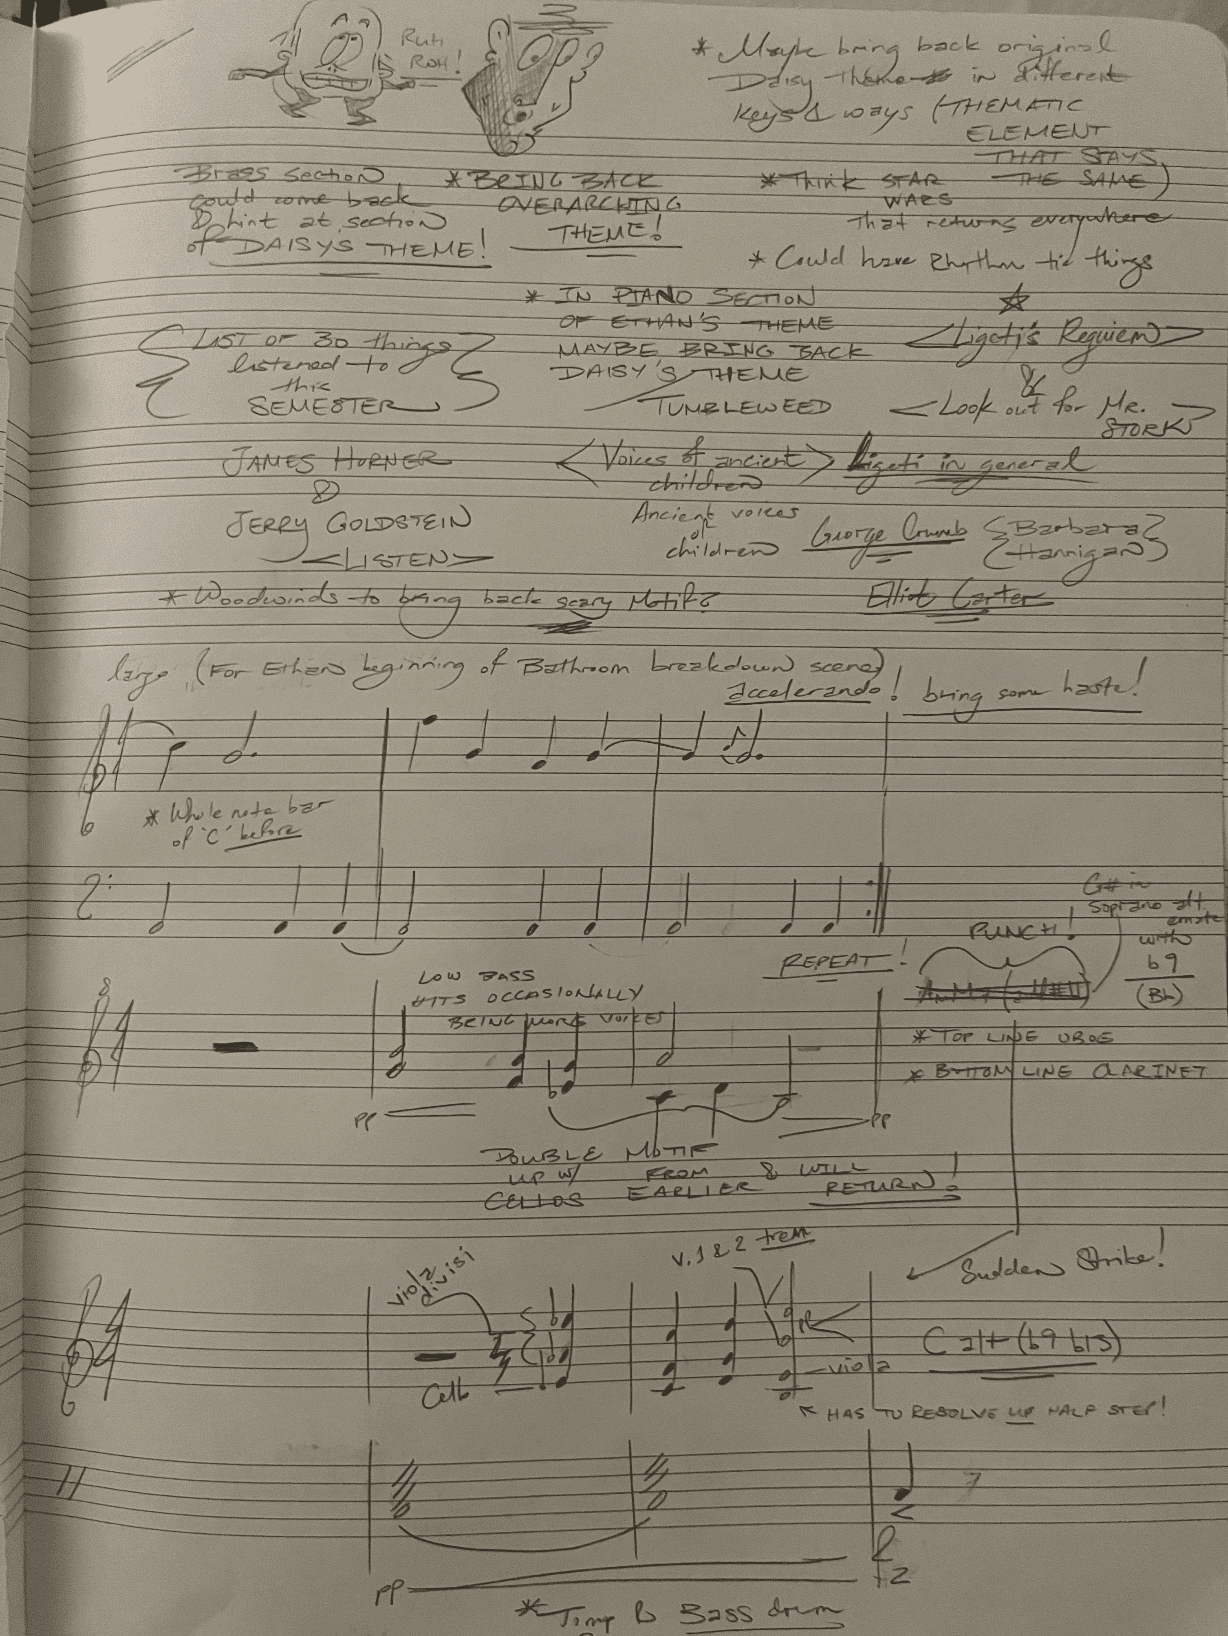 RUH
ROH!
* Maybe bring back original
Daisy theme in different
keys & ways (THEMATIC
ELEMENT
THAT STAYS
THE SAME)
Brass section
could come back
& hint at section
of DAISYS THEME!
* BRING BACK
OVERARCHING
THEME!
* Think STAR
WARS
that returns everywhere
* Could have Rhythm tic things
* IN PIANO SECTION
OF ETHAN'S THEME
MAYBE BRING BACK
DAISY'S THEME
LIST OF 30 things
listened to
this
SEMESTER
TUMBLEWEED
<Ligeti's Requiem>
&
<Look out for Mr.
STORK>
JAMES HORNER
&
JERRY GOLDSTEIN
<LISTEN>
<Voices of ancient
children>
Ancient voices
of
children
Ligeti in general
George Crumb
{Barbara
Hannigan}
Elliot Carter
* Woodwinds to bring back scary Motif?
largo (For Ethan beginning of Bathroom breakdown scene)
accelerando! bring some haste!
* Whole note bar
of 'C' before
REPEAT!
G# in
soprano
with
b9
(Bb)
PUNCH!
8
LOW BASS
HITS OCCASIONALLY
BRING MORE VOICES
* TOP LINE OBOE
* BOTTOM LINE CLARINET
pp
pp
DOUBLE MOTIF
UP W/ FROM & WILL
CELLOS EARLIER RETURN!
viola
divisi
V. 1 & 2 trem
Sudden Strike!
pp
C alt (b9 b13)
viola
Cello
HAS TO RESOLVE UP HALF STEP!
pp
fz
* Timp & Bass drum